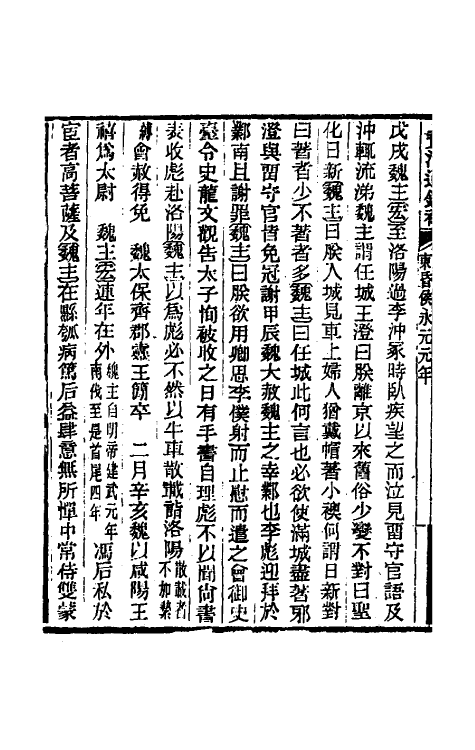 東昏侯永元元年
戊戌魏主宏至洛陽過李沖冢時臥疾望之而泣見留守官語及
沖輒流涕魏主謂任城王澄曰朕離京以來舊俗少變不對曰聖
化日新魏主曰朕入城見車上婦人猶戴帽著小襖何謂日新對
曰著者少不著者多魏主曰任城此何言也必欲使滿城盡著邪
澄與留守官皆免冠謝甲辰魏大赦魏主之幸鄴也李彪迎拜於
鄴南且謝罪魏主曰朕欲用卿思李僕射而止慰而遣之會御史
臺令史龍文觀告太子恂被收之日有手書自理彪不以聞尚書
表收彪赴洛陽魏主以為彪必不然以牛車散載詣洛陽散載者不加縶
縛會赦得免　魏太保齊郡靈王簡卒　二月辛亥魏以咸陽王
禧爲太尉　魏主宏連年在外魏主自明帝建武元年南伐至是首尾四年馮后私於
宦者高菩薩及魏主在縣瓠病篤后益肆意無所憚中常侍雙蒙